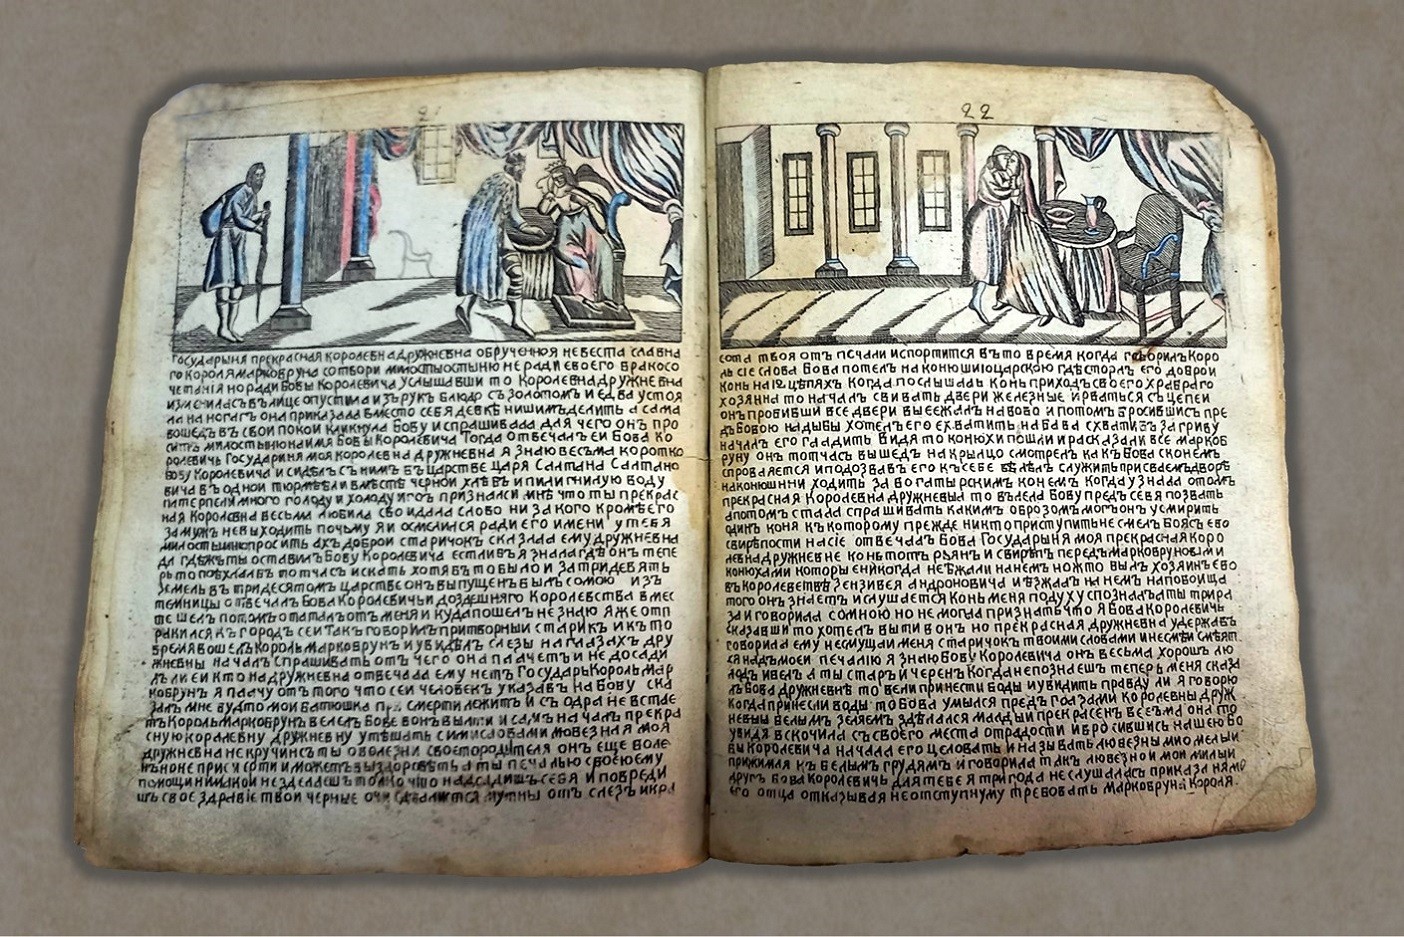 21
государыня прекрасная королевна дружневна обрученноя невеста славна
го короля маркобруна сотвори милостыстыню не ради своего бракосо
четанїя но ради бовы королевича услышавши то королевна дружневна
изменилась вълице опустила изърук блюдо съ золотом и едва устоя
ла на ногагъ она приказала вместо себя девкѣ нишимъ делить а сама
вошедъ въ свои покои кликнула бову и спрашивала для чего онъ про
ситъ милостыню на имя бовы королевича тогда отвечалъ еи бова ко
ролевичь государиня моя королевна дружневна я знаю весьма коротко
бову королевича и сиделъ съ нимъ въ царстве царя салтана салтано
вича въ однои тюрмѣ ели вместе чернои хлѣвъ и пили гнилую воду
патерпели много голоду и холоду и гоъ признался мнѣ что ты прекрас
ная королевна весьма любила ево и дала слово ни за кого кроме его
замужъ не выходить почьму я и осмелился ради его имени у тебя
милостыню просить ахъ доброи старичокъ сказала ему дружневна
да гдѣжъ ты оставилъ бову королевича естли въ я знала где онъ тепе
рь то поѣхала въ тотчасъ искать хотя въ то было и за тридевять
земель въ тридесятомъ царстве онъ выпущенъ былъ со мою изъ
темницы отвечалъ бова королевичь и до здешняго королевства вмес
те шелъ потомъ отсталъ отъ меня и куда пошелъ не знаю я же отп
равился въ городъ сеи такъ говорилъ притворныи старикъ и къ то
время вошелъ король маркобрунъ и увиделъ слезы на глазахъ дру
жневны началъ спрашивать отъ чего она плачетъ и не досади
лъ ли еи кто на дружневна отвечала ему нетъ государь король мар
кобрунъ я плачу отъ того что сеи человекъ указавъ на бову ска
залъ мне вудто мои батюшка при смерти лежитъ и съ одра не встае
тъ король маркобрунъ велелъ бове вонъ вытти и самъ началъ прекра
сную королевну дружневну утѣшать сими словами мовезная моя
дружневна не кручинсь ты о волезни своего родителя онъ еще воле
нъ ноне при смерти и можетъ выздороветь а ты печалью своею ему
помощи никакой не зделаешъ только что надсадишъ себя и повреди
шъ свое здравїе твои черные очи зделаются мутны отъ слезъ и кра
22
сота твоя отъ печали испортится въ то время когда говорилъ коро
ль сїе слова бова потелъ на конюшню царскою где сторлъ его доброи
конь на 12 цепяхъ когда послышалъ конь приходъ своего храбраго
хозянна то началъ свивать двери железные и рваться съ цепеи
онъ пробивши все двери выбежалъ на вово и потомъ бросившись пре
дъ бовою на дыбы хотелъ его схватить на бава схватилъ за гриву
началъ его гладить видя то конюхи пошли и расказали все маркоб
руну онъ тотчасъ вышедъ на крылцо смотрелъ какъ бова с конемъ
справляется и подозвавъ его къ себе велелъ служить при сваемъ дворѣ
на конюшни и ходить за богатырскимъ конемъ когда узнала о томъ
прекрасная королевна дружневна то велела бову предъ себя позвать
а потомъ стала спрашивать какимъ оброзомъ могъ онъ усмирить
одинъ коня къ которому прежде никто приступить не смелъ боясь ево
свирѣпости на сїе отвечалъ бова государыня моя прекрасная коро
левна дружневне конь тотъ рьянъ и свирѣпъ передъ маркобруновыми
конюхами которые никогда не ѣзжали на немъ но кто былъ хозяинъ ево
въ королевстве зензивея андроновича и ѣзжалъ на немъ на побоища
того онъ знаетъ и слушается конь меня по духу спозналъ а ты три ра
за и говорила со мною но не могла признать что я бова королевичь
сказавши то хотелъ выти вонъ но прекрасная дружневна удержавъ
говорила ему не смущаи меня старичокъ твоими словами и не смеи смеят
ся надъ моеи печалїю я знаю бову королевича онъ весьма хорошъ лю
лодъ и белъ а ты старъ и черенъ когда не познаешъ теперь меня сказа
лъ бова дружневнѣ то вели принести воды и увидить правду ли я говорю
когда принесли воды то бова умылся предъ глазами королевны друж
невны белымъ зелямъ зделался маладыи прекрасенъ весьма она то
увидя вскочила съ своего места отрадости и бросившись на шею бо
вы королевича начала его целовать и называть любезныи мои милыи
прижимая къ белымъ грудямъ и говорила такъ любезнои мои милыи
другъ бова королевичь для тебя я три года не слушалась приказанямо
его отца отказывая неотступнуму требовать маркобруна короля